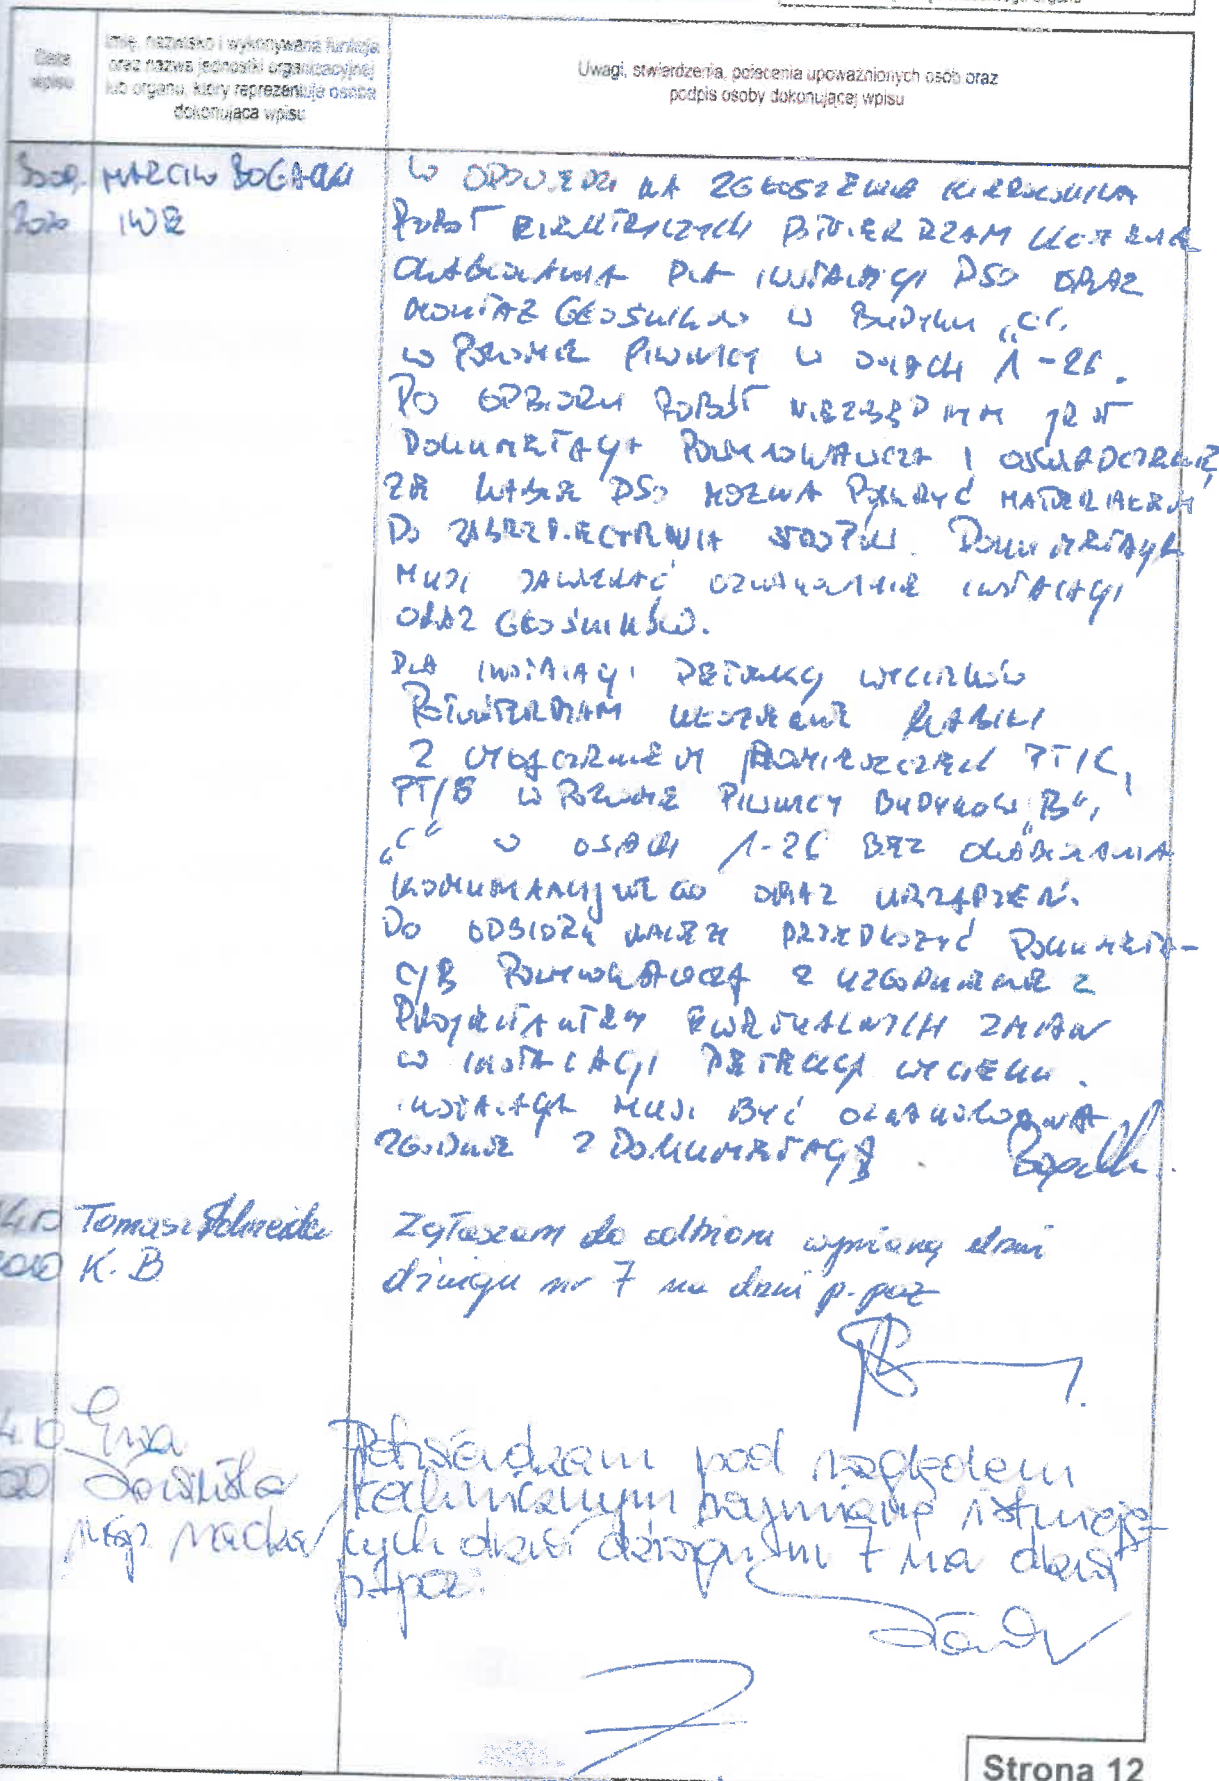 Data
wpisu
Imię, nazwisko i wykonywana funkcja
oraz nazwa jednostki organizacyjnej
lub organu, który reprezentuje osoba
dokonująca wpisu
Uwagi, stwierdzenia, polecenia upoważnionych osób oraz
podpis osoby dokonującej wpisu
MARCIN BOGACKI
W ODPOWIEDZI NA ZGŁOSZENIE KIEROWNIKA
ROBÓT ELEKTRYCZNYCH POTWIERDZAM UŁOŻENIE
OKABLOWANIA DLA INSTALACJI DSO ORAZ
MONTAŻ GŁOŚNIKÓW W BUDYNKU „C”.
W POZIOMIE PIWNICY W OSIACH 1-26.
PO ODBIORU ROBÓT NIEZBĘDNYM JEST
DOKUMENTACJA POWYKONAWCZA I OŚWIADCZENIE,
ŻE KABLE DSO MOŻNA POKRYĆ MATERIAŁEM
DO ZABEZPIECZENIA STROPU. DOKUMENTACJA
MUSI ZAWIERAĆ OZNAKOWANIE INSTALACJI
ORAZ GŁOŚNIKÓW.
DLA INSTALACJI DETEKCJI WYCIEKÓW
POTWIERDZAM UŁOŻENIE KABLI
Z WYŁĄCZENIEM POMIESZCZEŃ PT/C,
PT/B W POZIOMIE PIWNICY BUDYNKÓW „B”,
„C” W OSIACH 1-26 BEZ OKABLOWANIA
KOMUNIKACYJNEGO ORAZ URZĄDZEŃ.
DO ODBIORU NALEŻY PRZEDŁOŻYĆ DOKUMENTA-
CJĘ POWYKONAWCZĄ Z UZGODNIENIE Z
PROJEKTANTEM EWENTUALNYCH ZMIAN
W INSTALACJI DETEKCJI WYCIEKU.
INSTALACJA MUSI BYĆ OZNAKOWANA
ZGODNIE Z DOKUMENTACJĄ
14.10 Tomasz
K. B
Zgłaszam do odbioru wymianę drzwi
dźwigu nr 7 na drzwi p.poż
Ewa
insp. nadzor
Potwierdzam pod względem
technicznym wymianę istnieją-
cych drzwi dźwigu nr 7 na drzwi
p.poż.
Strona 12